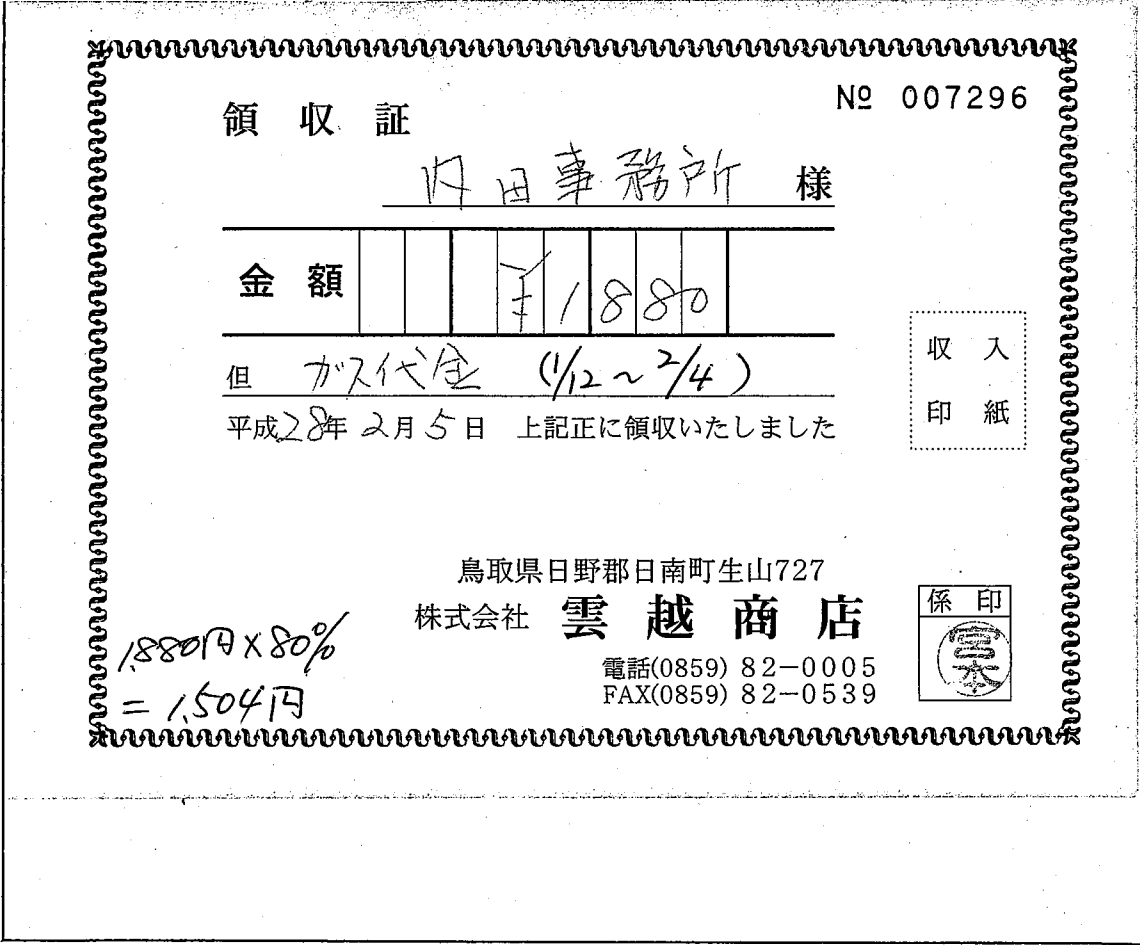 № 007296
領収証
内田事務所 様
金額 ¥1880
但 ガス代金 (1/12～2/4)
平成28年2月5日 上記正に領収いたしました
収入
印紙
鳥取県日野郡日南町生山727
株式会社 雲越商店
電話(0859) 82-0005
FAX(0859) 82-0539
係印
宮本
1,880円×80%
=1,504円